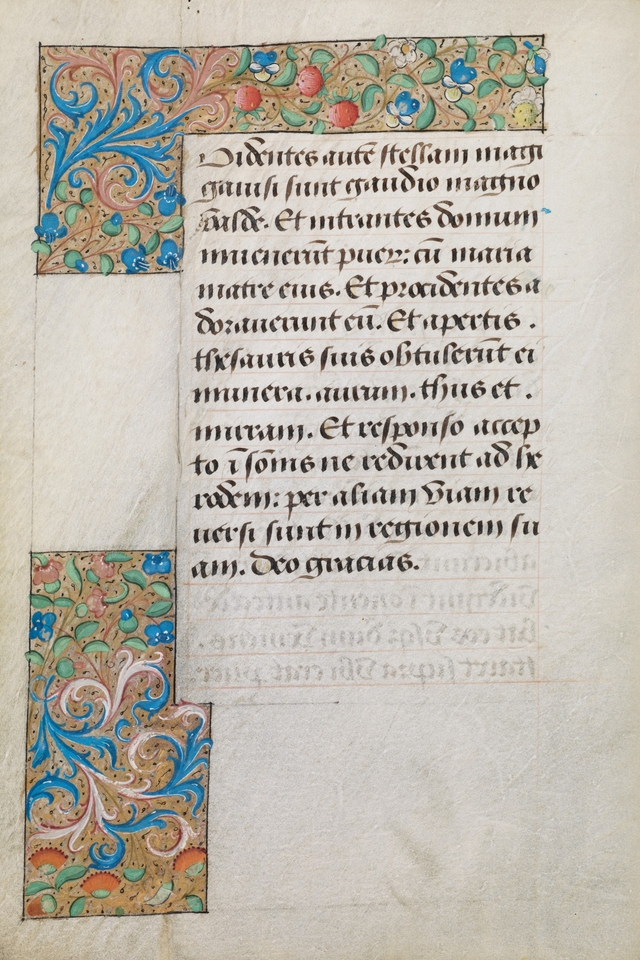 Videntes autē stellam magi
gauisi sunt gaudio magno
valde. Et intrantes domum
inuenerūt puerꝝ: cū maria
matre eius. Et procidentes a
dorauerunt eū. Et apertis.
thesauris suis obtulerūt ei
munera. aurum. thus et.
mirram. Et responso accep
to ī somīs ne redirent ad he
rodem: per aliam viam re
uersi sunt in regionem su
am. Deo gracias.